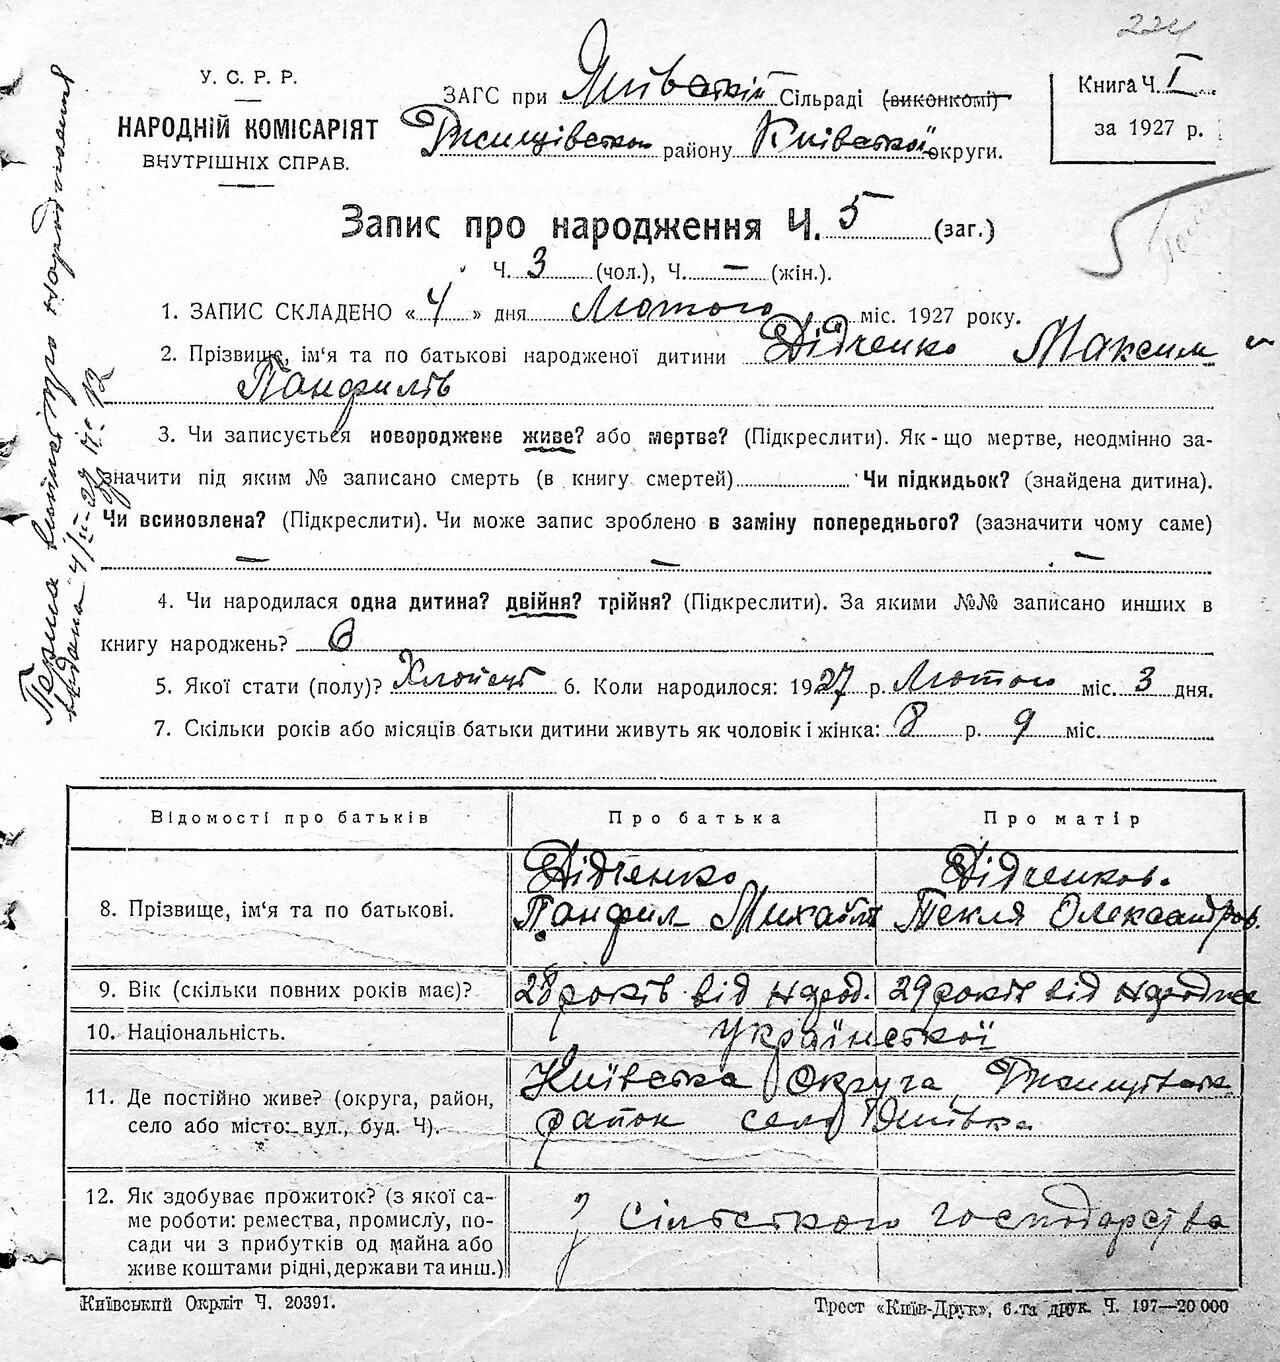 224
У. С. Р. Р.
НАРОДНІЙ КОМІСАРІЯТ
ВНУТРІШНІХ СПРАВ.
ЗАГС при Сільраді (виконкомі)
Ржищівском району Київської округи.
Книга Ч. I
за 1927 р.
5
Запис про народження Ч. 5 (заг.)
Ч. 3 (чол.), Ч. — (жін.).
1. ЗАПИС СКЛАДЕНО « 4 » дня Лютого міс. 1927 року.
2. Прізвище, ім'я та по батькові народженої дитини Дідченко Максим
Панфилів
3. Чи записується новороджене живе? або мертва? (Підкреслити). Як-що мертве, неодмінно за-
значити під яким № записано смерть (в книгу смертей) Чи підкидьок? (знайдена дитина).
Чи всиновлена? (Підкреслити). Чи може запис зроблено в заміну попереднього? (зазначити чому саме)
— — —
4. Чи народилася одна дитина? двійня? трійня? (Підкреслити). За якими №№ записано инших в
книгу народжень? 6
5. Якої стати (полу)? Хлопець 6. Коли народилося: 1927 р. Лютого міс. 3 дня.
7. Скільки років або місяців батьки дитини живуть як чоловік і жінка: 8 р. 9 міс.
Відомості про батьків Про батька Про матір
Дідченко Дідченков.
8. Прізвище, ім'я та по батькові. Панфил Михайлів Текля Олександров.
9. Вік (скільки повних років має)? 28 років від народ. 29 років від народження
10. Національність. Української
11. Де постійно живе? (округа, район, Київська Округа, Ржищівськ.
село або місто: вул., буд. Ч). район село
12. Як здобуває прожиток? (з якої са-
ме роботи: ремества, промислу, по- з сільського господарства
сади чи з прибутків од майна або
живе коштами рідні, держави та инш.)
Київський Окрліт Ч. 20391.
Трест «Київ-Друк», 6-та друк. Ч. 197—20 000
про народження
видана 4/II-27 № 12